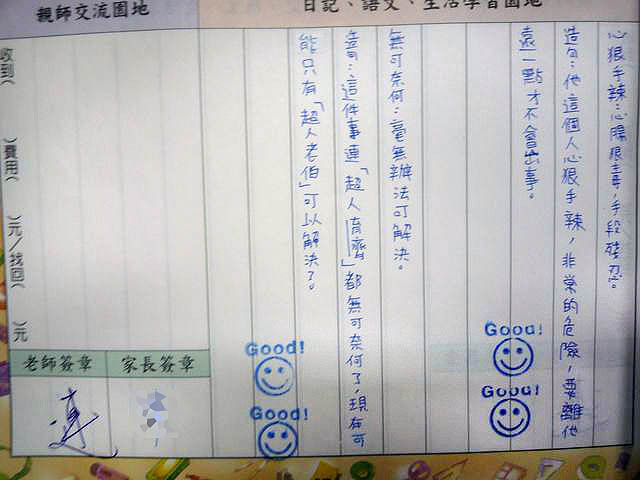 親師交流園地
日記、語文、生活學習園地
心狠手辣：心腸狠毒，手段殘忍。
造句：他這個人心狠手辣，非常的危險，要離他
遠一點才不會出事。
無可奈何：毫無辦法可解決。
造句：這件事連「超人育齊」都無可奈何了，現在可
能只有「超人老伯」可以解決了。
收到（ ）費用（ ）元／找回（ ）元
老師簽章
家長簽章
Good!
Good!
Good!
Good!